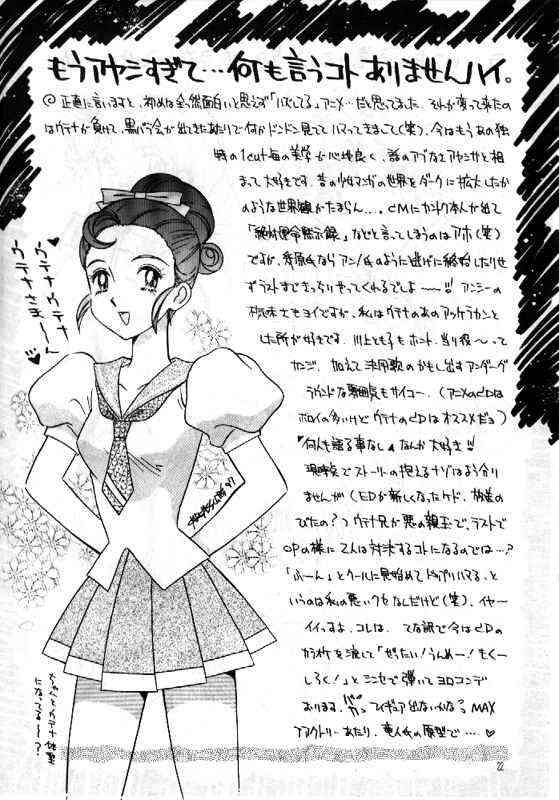 もうアヤシすぎて…何も言うコトありませんハイ。
◎正直に言いますと、初めは全然面白いと思えず「ハズしてる」アニメ…だと思ってました。それが変って来たの
はウテナが負けて、黒バラ会が出てきたあたりで何かドンドン見ててハマってきまして(笑)、今はもうあの独
特の1cut毎の美学が心地良く、話のアブなさアヤシサと相
まって大好きです。昔の少女マンガの世界をダークに拡大したか
のような世界観がたまらん…。CMにカントク本人が出て
「絶対運命黙示録」などと言ってしまうのはアホ(笑)
ですが、幾原氏ならアンノ氏のように逃げに終始したりせ
ずラストまできっちりやってくれるでしょ〜!! アンシーの
もヨイですが、私はウテナのあのアッケラカンと
した所が好きです。川上とも子もホント、当り役〜って
カンジ。加えて決闘歌のかもし出すアンダーグ
ラウンドな雰囲気もサイコー。(アニメのCDは
ボロイの多いけどウテナのCDはオススメだよ)
"何人も語る事なし"なんか大好き!!
現時点でストーリーの抱えるナゾはよう分り
ませんが(EDが新しくなったケド、
びたの?)ウテナ兄が悪の親玉で、ラストで
OPの様に2人は対決するコトになるのでは…?
「ふーん」とクールに見始めてドップリハマる、と
いうのは私の悪いクセなんだけど(笑)、イヤー
イイっすよ、コレは。てな訳で今はCDの
カラオケを流して「ぜったい!うんめー!もくー
しろく!」とミンセで弾いてヨロコンデ
おります。フィギュア出ないかな? MAX
ファクトリーあたり、竜人氏の原型で……♥
ウテナウテナ
ウテナさま〜ん♥
'97
ちゃんとウテナ体型
になってる〜?
22